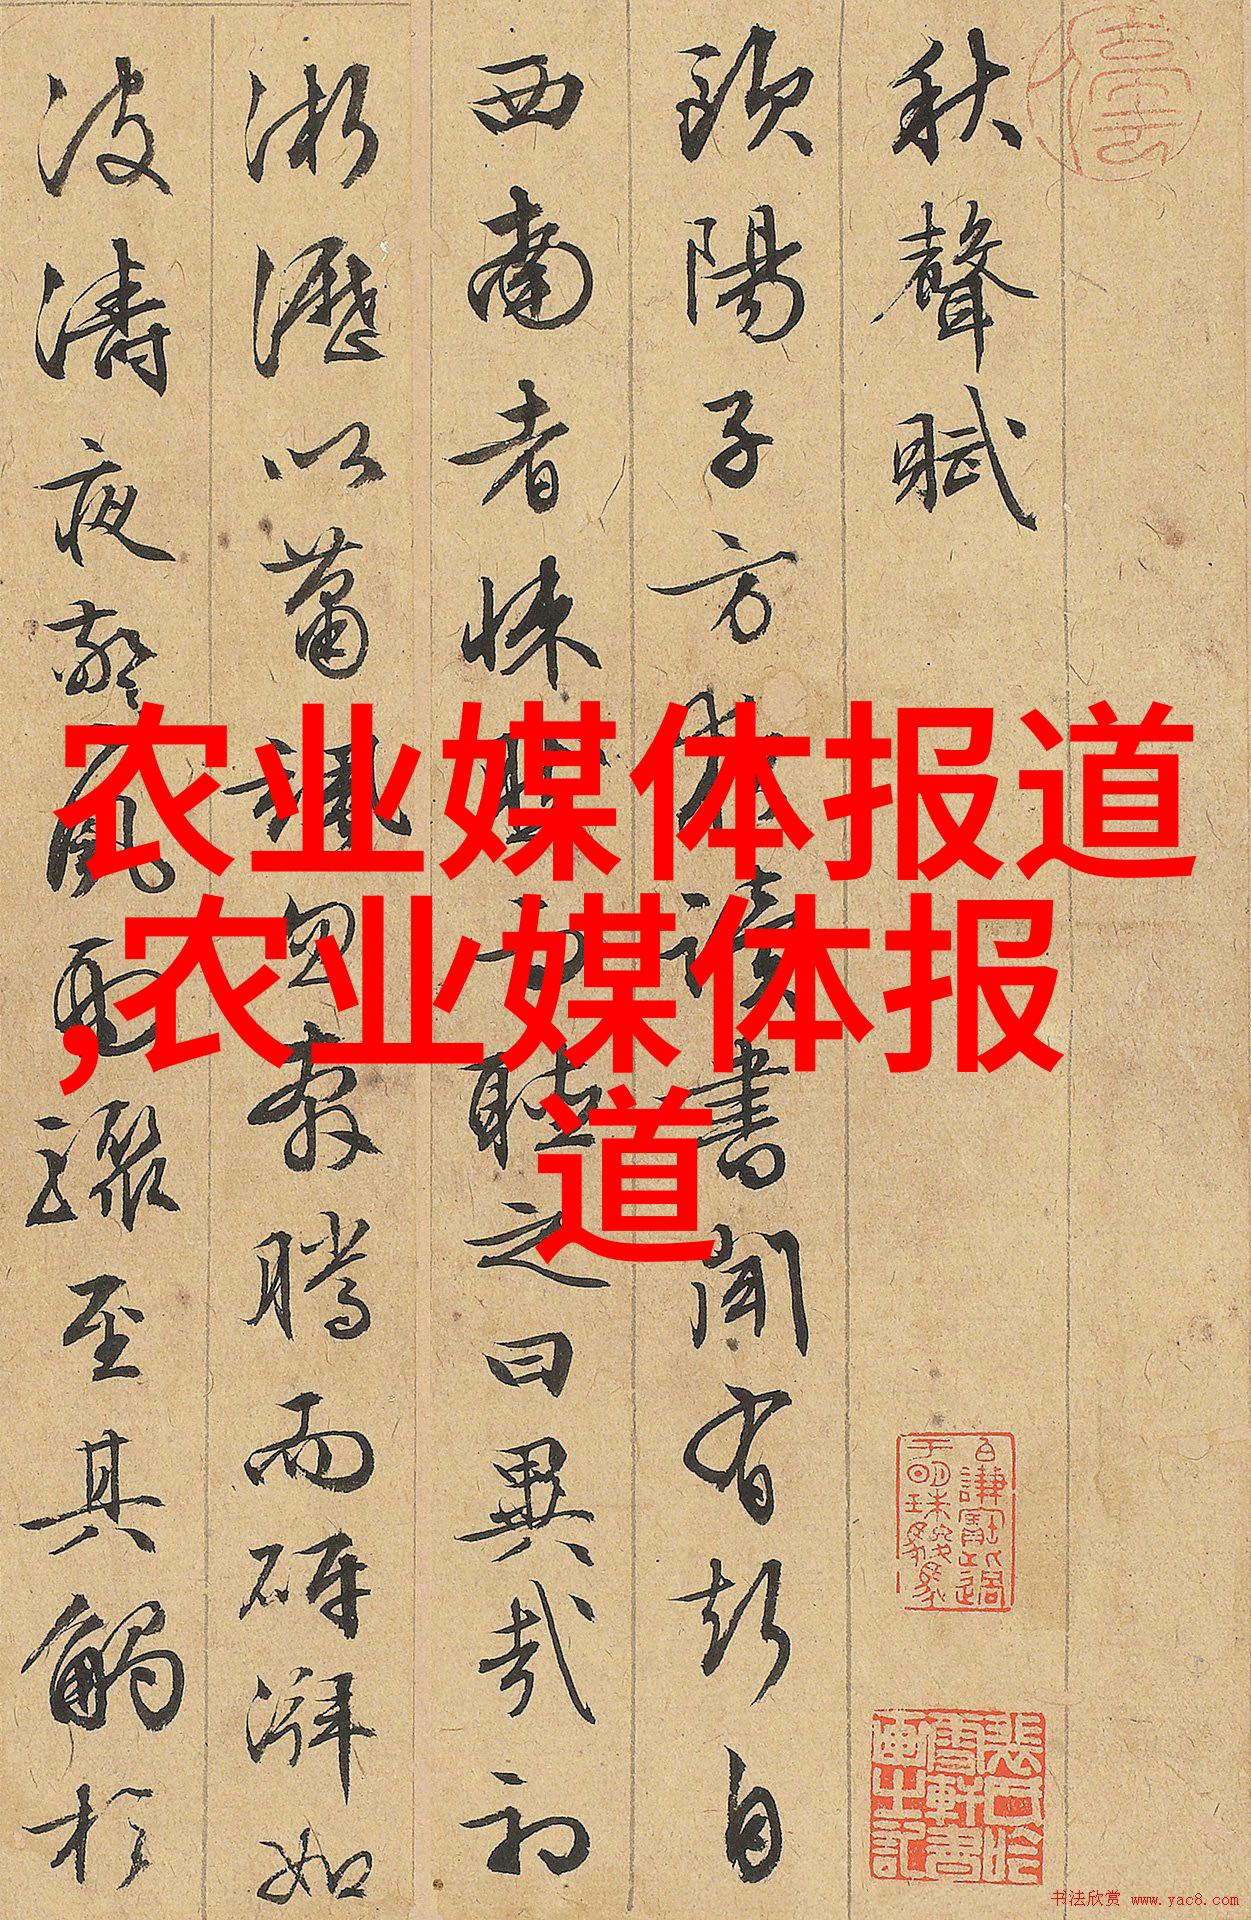 秋聲賦
歐陽子方夜讀書聞有聲自
西南者悚然而聽之曰異哉初
淅瀝以蕭颯忽奔騰而砰湃如
波濤夜驚風雨驟至其觸於
农业媒体报道
,农业媒体报
道
书法欣赏 www.yac8.com